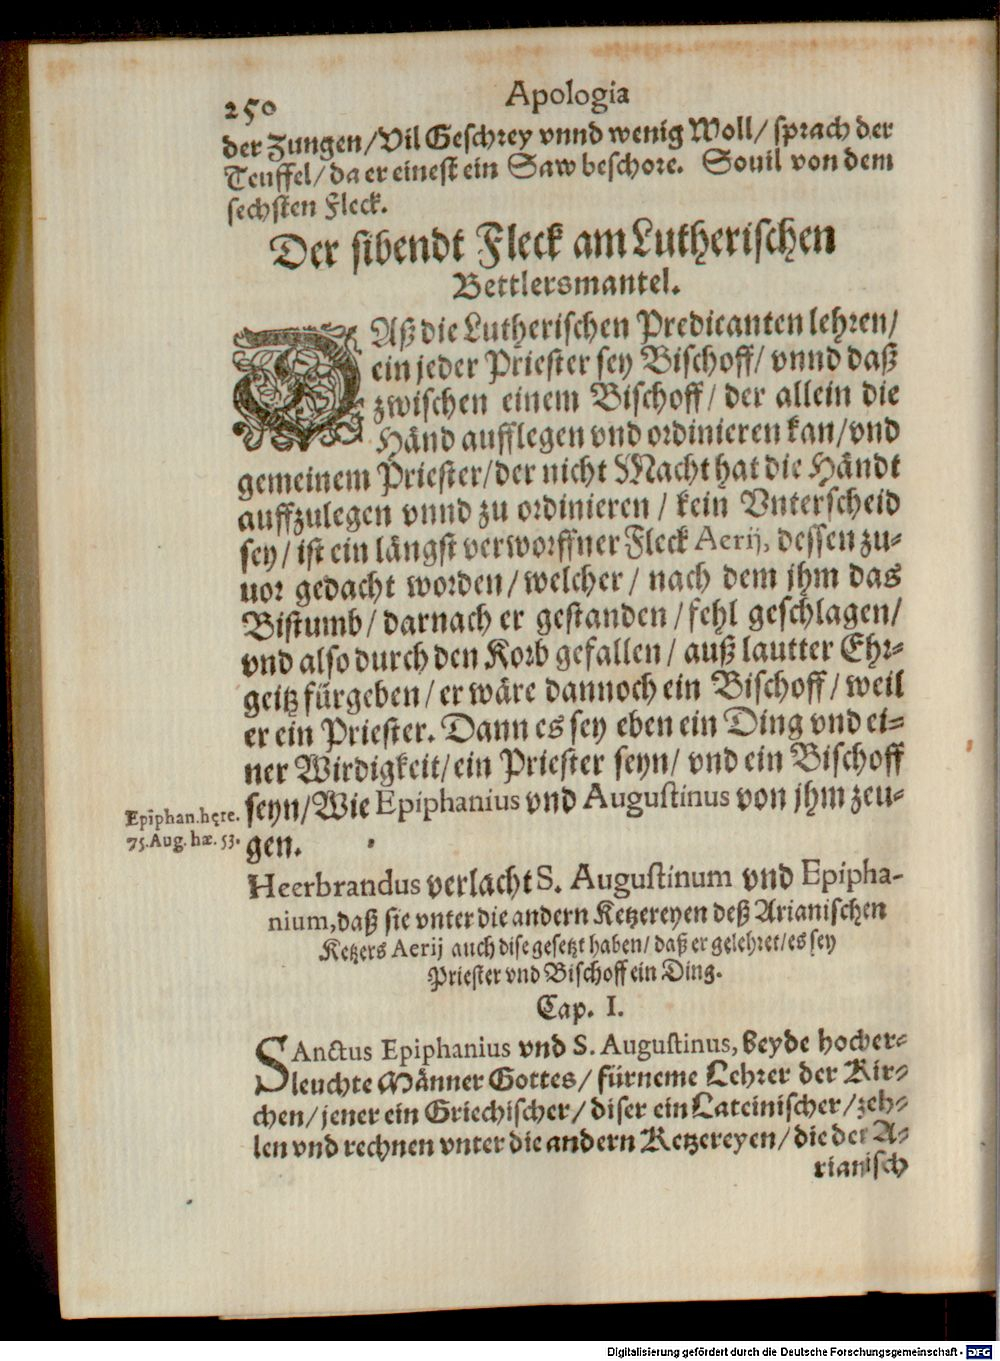 250
Apologia
der Zungen/Vil Geschrey vnnd wenig Woll/ sprach der
Teuffel/ da er einest ein Saw beschore. Souil von dem
sechsten Fleck.
Der sibendt Fleck am Lutherischen
Bettlersmantel.
DAß die Lutherischen Predicanten lehren/
ein jeder Priester sey Bischoff/ vnnd daß
zwischen einem Bischoff/ der allein die
Händ aufflegen vnd ordinieren kan/vnd
gemeinem Priester/der nicht Macht hat die Händt
auffzulegen vnnd zu ordinieren / kein Vnterscheid
sey/ ist ein längst verworffner Fleck Aerij, dessen zu-
uor gedacht worden/welcher/ nach dem jhm das
Bistumb/ darnach er gestanden /fehl geschlagen/
vnd also durch den Korb gefallen/ auß lautter Ehr-
geitz fürgeben/er wäre dannoch ein Bischoff/ weil
er ein Priester. Dann es sey eben ein Ding vnd ei-
ner Wirdigkeit/ein Priester seyn/ vnd ein Bischoff
seyn/Wie Epiphanius vnd Augustinus von jhm zeu-
gen.
Epiphan.hęre.
75.Aug. hæ. 53.
Heerbrandus verlacht S. Augustinum vnd Epipha-
nium,daß sie vnter die andern Ketzereyen deß Arianischen
Ketzers Aerij auch dise gesetzt haben/ daß er gelehret/es sey
Priester vnd Bischoff ein Ding.
Cap. I.
SAnctus Epiphanius vnd S. Augustinus, beyde hocher-
leuchte Männer Gottes/ fürneme Lehrer der Kir-
chen/jener ein Griechischer/ diser ein Lateinischer/zeh-
len vnd rechnen vnter die andern Ketzereyen/die der A-
rianisch
Digitalisierung gefördert durch die Deutsche Forschungsgemeinschaft - DFG